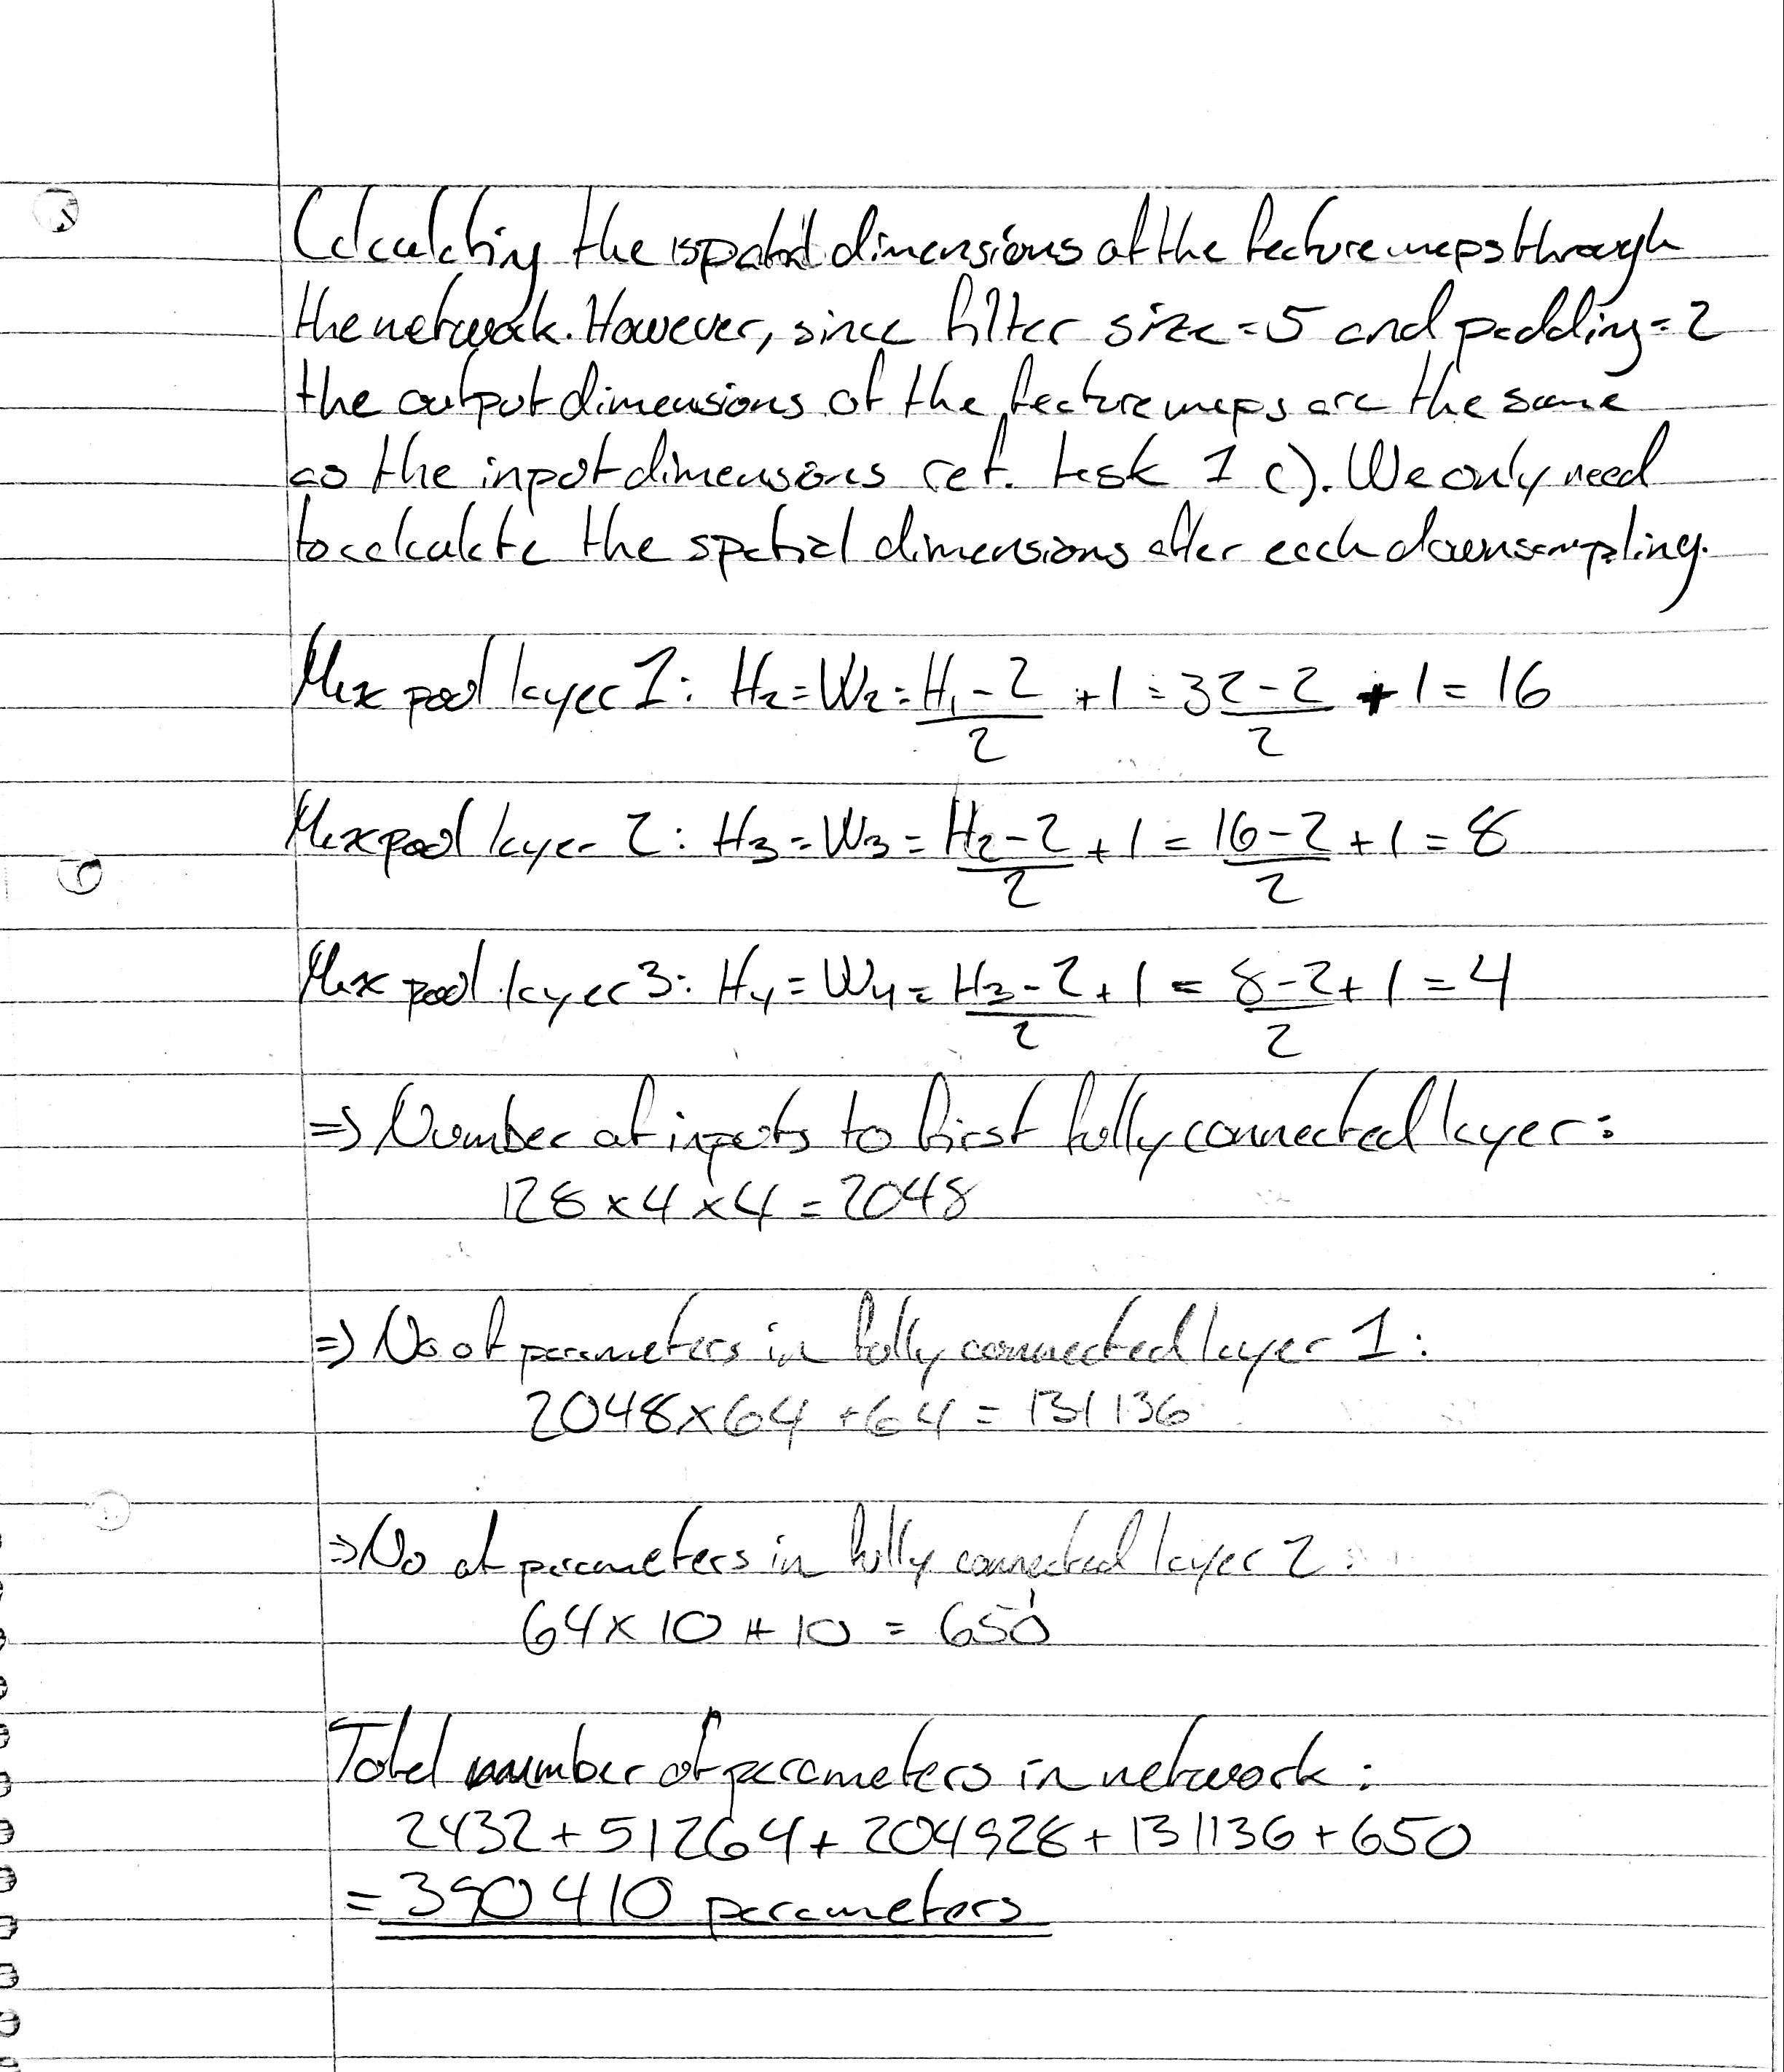 Calculating the spatial dimensions of the feature maps through
the network. However, since filter size = 5 and padding = 2
the output dimensions of the feature maps are the same
as the input dimensions ref. task 1 c). We only need
to calculate the spatial dimensions after each downsampling.
Max pool layer 1: H₂ = W₂ = (H₁ - 2)/2 + 1 = (32 - 2)/2 + 1 = 16
Max pool layer 2: H₃ = W₃ = (H₂ - 2)/2 + 1 = (16 - 2)/2 + 1 = 8
Max pool layer 3: H₄ = W₄ = (H₃ - 2)/2 + 1 = (8 - 2)/2 + 1 = 4
=> Number of inputs to first fully connected layer:
128 x 4 x 4 = 2048
=> No of parameters in fully connected layer 1:
2048 x 64 + 64 = 131136
=> No of parameters in fully connected layer 2:
64 x 10 + 10 = 650
Total number of parameters in network:
2432 + 51264 + 204928 + 131136 + 650
= 390410 parameters